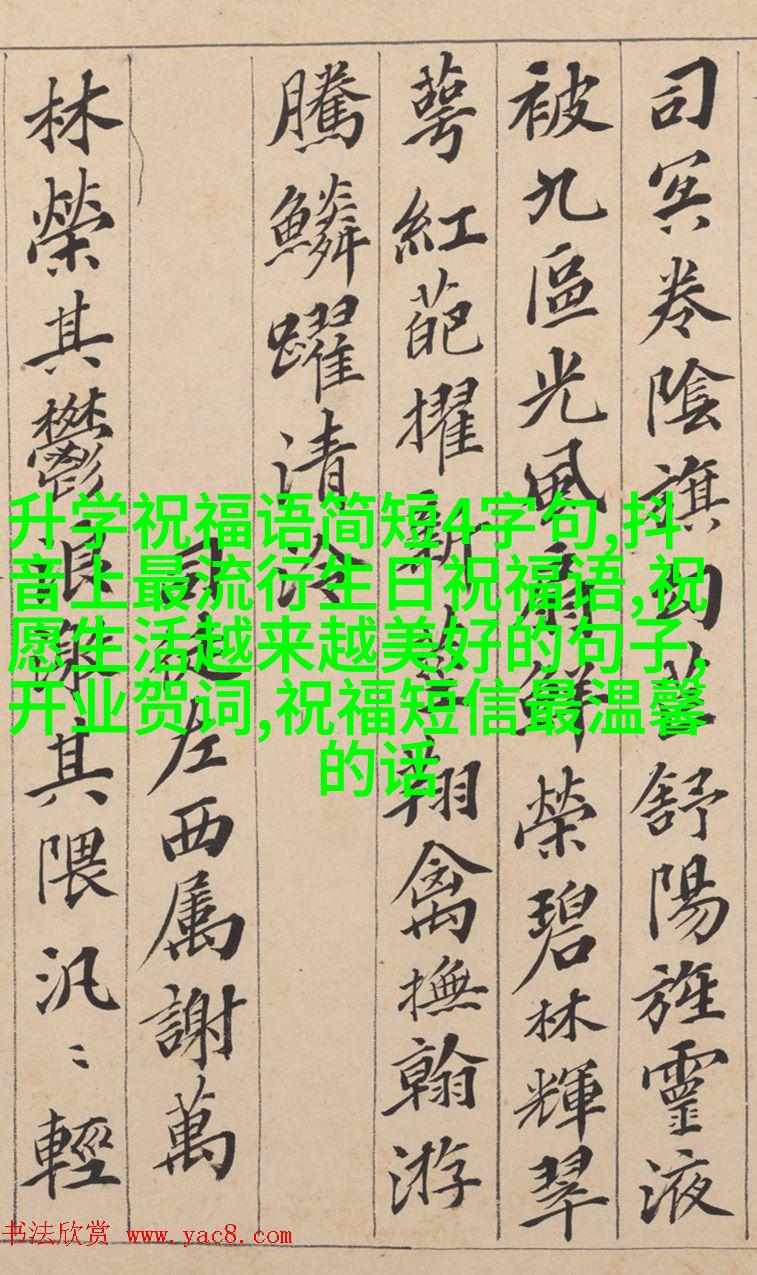 司冥卷陰旗句芒舒陽旌靈液
被九區光風扇鮮榮碧林輝翠
萼紅葩擢新莖翔禽撫翰游
騰鱗躍清泠
司徒左西属謝萬
林榮其鬱浪激其隈汎〻輕
升学祝福语简短4字句,抖
音上最流行生日祝福语,祝
愿生活越来越美好的句子,
开业贺词,祝福短信最温馨
的话
书法欣赏 www.yac8.com